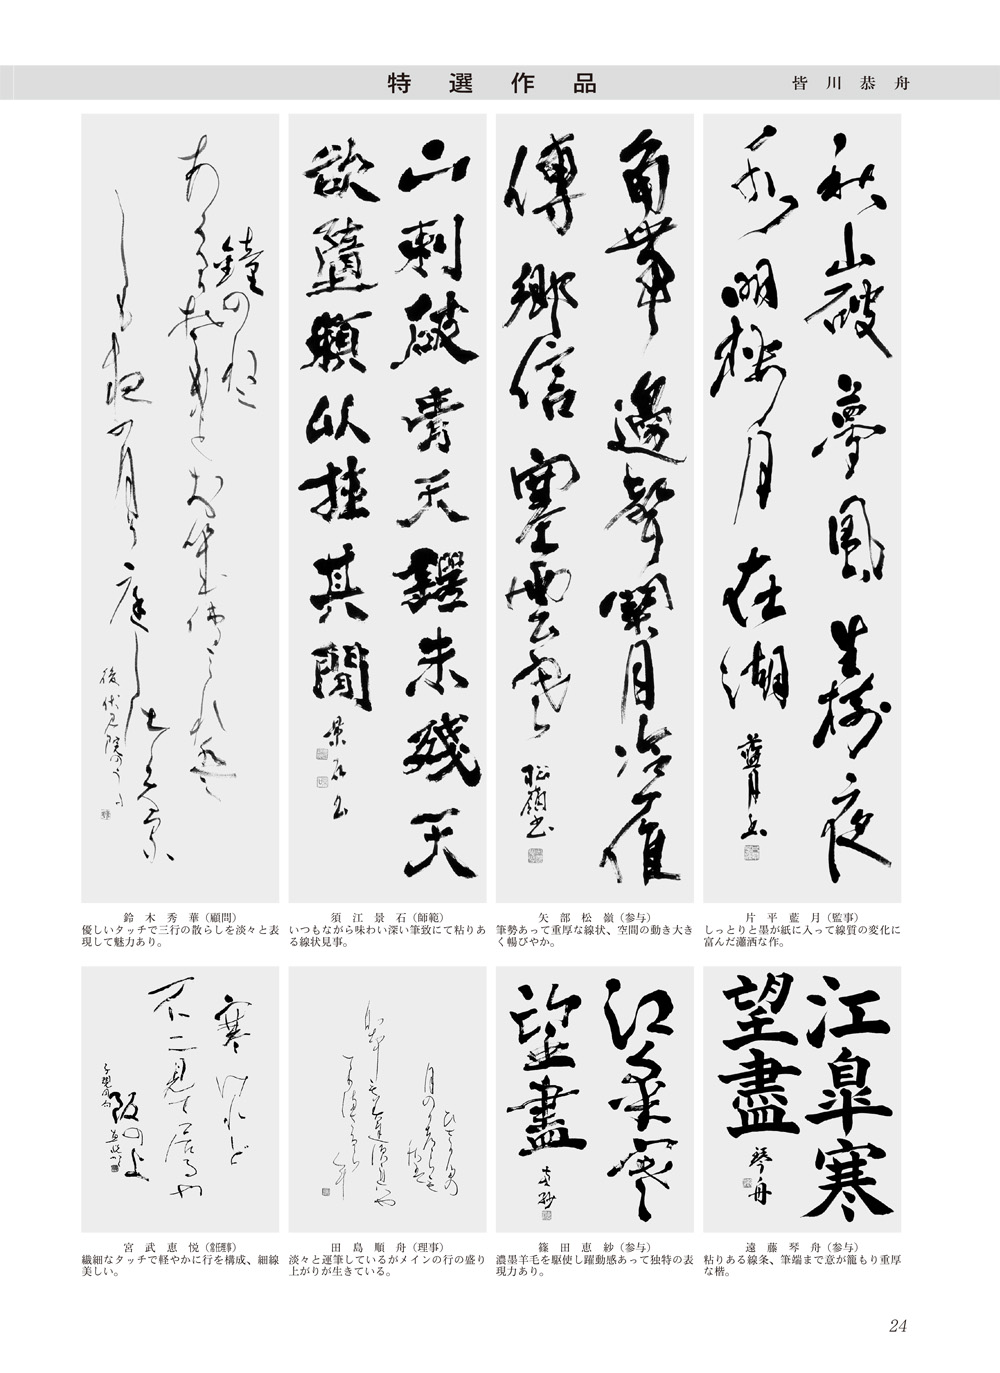 特選作品
皆川恭舟
秋山破夢風生樹夜
水明楼月在湖
藍月書
片平藍月（監事）
しっとりと墨が紙に入って線質の変化に
富んだ瀟洒な作。
角華邊聲関月冷雁
傳郷信塞雲
松嶺書
矢部松嶺（参与）
筆勢あって重厚な線状、空間の動き大き
く暢びやか。
山刺破青天鍔未残天
欲墮頼以拄其間
景石書
須江景石（師範）
いつもながら味わい深い筆致にて粘りあ
る線状見事。
鐘の
月
庭
後伏見院の
鈴木秀華（顧問）
優しいタッチで三行の散らしを淡々と表
現して魅力あり。
江皐寒
望盡
琴舟
遠藤琴舟（参与）
粘りある線条、筆端まで意が籠もり重厚
な楷。
江皐寒
望盡
恵紗
篠田恵紗（参与）
濃墨羊毛を駆使し躍動感あって独特の表
現力あり。
田島順舟（理事）
淡々と運筆しているがメインの行の盛り
上がりが生きている。
寒けれど
不二見て居るや
阪の上
子規の句
宮武恵悦（常任理事）
繊細なタッチで軽やかに行を構成、細線
美しい。
24